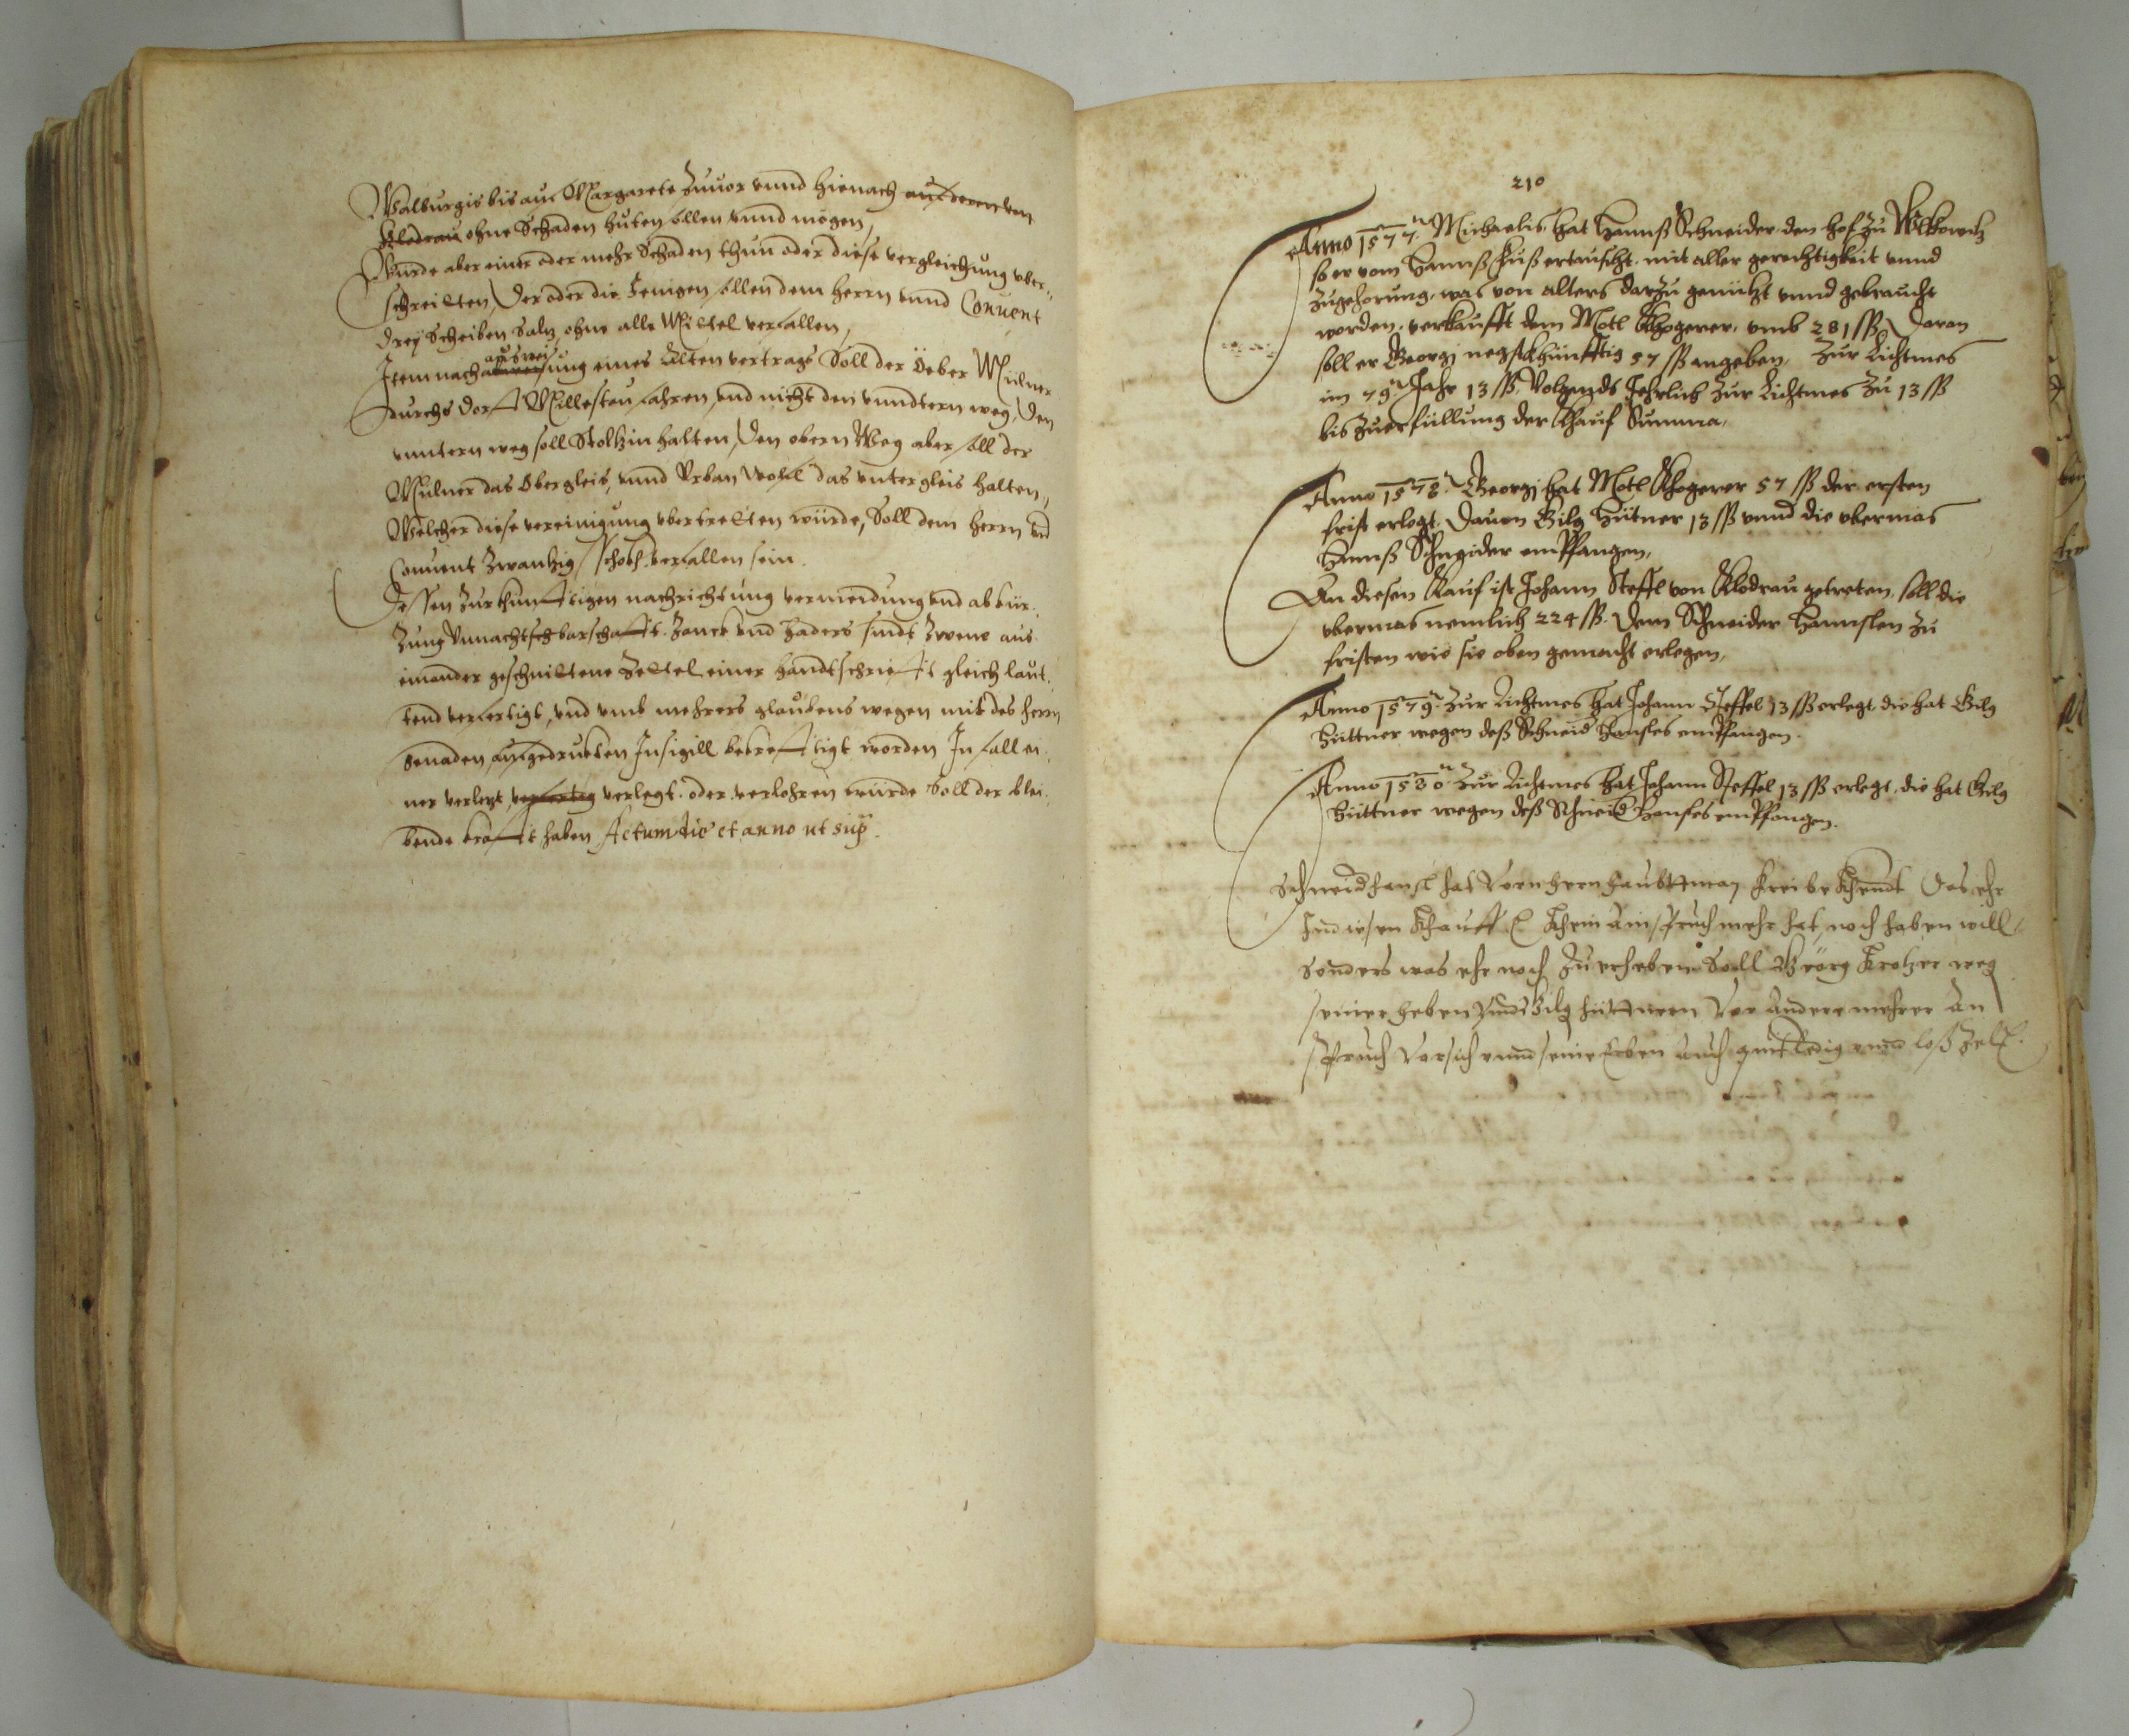 Walburgis bis auf Margarete zuuor vnnd hienach auf deren von
Kladrau ohne Schaden huten sollen vnnd mögen,
Wurde aber einer oder mehr Schaden thun oder diese vergleichung vber¬
schreitten, Der oder die Jenigen sollen dem herrn vnnd Conuent
drey Scheiben Saltz ohne alle Mittel verfallen,
auswei
Item nach anweisung eines Alten vertrags Soll der Öeber Mülner
durchs dorf Millestau fahren, vnd nicht den vnndtern weg, Den
vnntern weg soll Stoltzin halten, Den obern Weg aber soll der
Mülner das Obergleis, vnnd Vrban Wohl das vntergleis halten,
Welcher diese vereinigung vbertretten würde, Soll dem herrn vnd
Conuent zwantzig schock verfallen sein.
Dessen zur khunfftigen nachrichtung vermeidung vnd abkür¬
zung vnnachtbarschafft. Zanck vnd haders sindt zwene aus
einander geschnittene Zettel einer handtschriefft gleich laut¬
tend verfertigt, vnd vmb mehrers glaubens wegen mit des herrn
Genaden aufgedruckten Insigill bekrefftigt worden In fall ei¬
ner verletzt verfertig verlegt. oder verlohren würde Soll der blei¬
bende krafft haben Actum die et anno ut sup.
210
Anno 1577 Michaelis hat Hannß Schneider den hof zu Wolkowitz
so er vom Hannß Fuß ertauscht mit aller gerechtigkeit vnnd
zugehorung, was von alters darzu genützt vnnd gebraucht
worden, verkaufft dem Motl Khogerer, vmb 281 ßß, Daran
soll er Georgi negstkhünfftig 57 ßß angeben, Zur Lichtmes
im 79 Jahr 13 ßß, Volgends Jehrlich zur Lichtmes zu 13 ßß
bis zu erfüllung der Khauf Summa,
Anno 1578 Georgi hat Motl Khogerer 57 ßß der ersten
frist erlegt. Dauon Gilg Hütner 13 ßß vnnd die vbermas
Hannß Schneider empfangen,
An diesen Kauf ist Johann Steffl von Kladrau getreten, soll die
vbermas nemlich 224 ßß. Dem Schneider Hannslen zu
fristen wie sie oben gemacht erlegen,
Anno 1579 Zur Lichtmes hat Johann Steffel 13 ßß erlegt die hat Gilg
Hüttner wegen deß Schneid Hansles empfangen.
Anno 1580 Zur Lichtmes hat Johann Steffel 13 ßß erlegt, die hat Gilg
Hüttner wegen deß Schneid Hansles empfangen.
Schneidhansl hat Vorn hern haubttman frei bekhendt Das ehr
Kauff Khein Anspruch mehr hat, noch haben will
sonders was ehr noch zu erheben Soll Geörg
Gilg hüttnern andere mehrer An
spruch vor sich vnnd seine Erben auch quit ledig vnnd loß